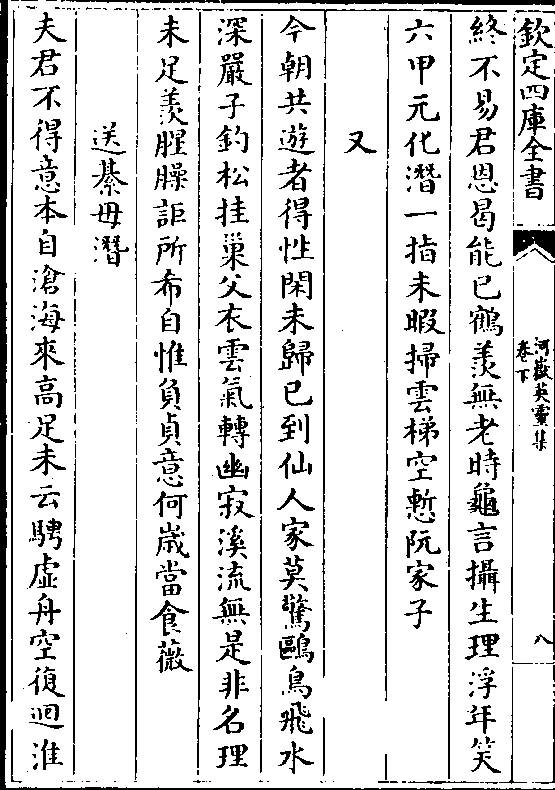 欽定四庫全書
河嶽英靈集
卷下
八
終不易君恩曷能已鶴羨無老時龜言攝生理浮年笑
六甲元化潛一指未暇掃雲梯空慙阮家子
又
今朝共遊者得性閑未歸已到仙人家莫驚鷗鳥飛水
深嚴子釣松挂巢父衣雲氣轉幽寂溪流無是非名理
未足羨腥臊詎所希自惟負貞意何嵗當食薇
送綦毋潛
夫君不得意本自滄海來高足未云騁虛舟空復迴淮